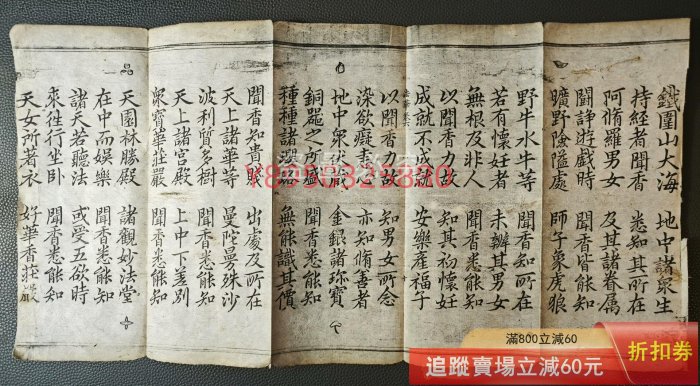 鐵圍山大海 地中諸衆生
持經者聞香 悉知其所在
阿脩羅男女 及其諸眷属
鬪諍遊戲時 聞香皆能知
曠野險隘處 師子象虎狼
野牛水牛等 聞香知所在
若有懷妊者 未辨其男女
無根及非人 聞香悉能知
以聞香力故 知其初懷妊
成就不成就 安樂産福子
以聞香力故 知男女所念
染欲癡恚心 亦知脩善者
地中衆伏藏 金銀諸珍寶
銅器之所盛 聞香悉能知
種種諸瓔珞 無能識其價
聞香知貴賤 出處及所在
天上諸華等 曼陀曼殊沙
波利質多樹 聞香悉能知
天上諸宮殿 上中下差別
衆寶華莊嚴 聞香悉能知
天園林勝殿 諸觀妙法堂
在中而娛樂 聞香悉能知
諸天若聽法 或受五欲時
來往行坐卧 聞香悉能知
天女所著衣 好華香莊嚴
滿800立減60
追蹤賣場立減60元
折扣券